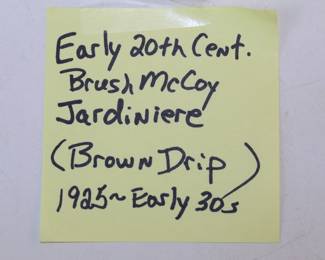 Early 20th Cent.
Brush McCoy
Jardiniere
(Brown Drip)
1925~Early 30s